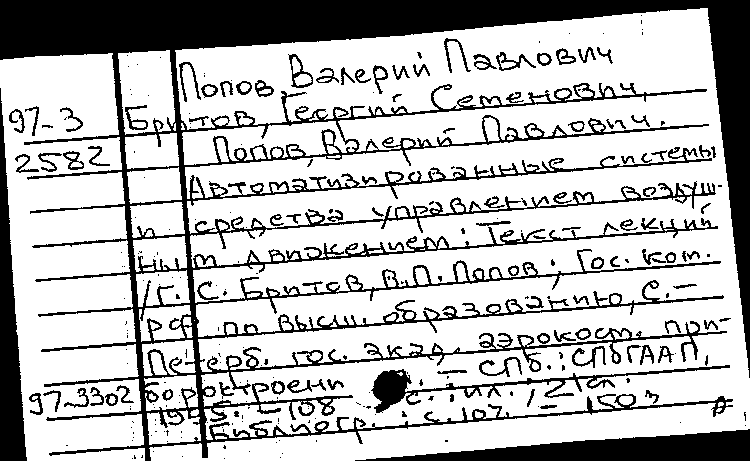 Попов, Валерий Павлович
97-3 Бритов, Георгий Семенович,
2582 Попов, Валерий Павлович.
Автоматизированные системы
и средства управлением воздуш-
ным движением: Текст лекций
/Г. С. Бритов, В.П. Попов; Гос. ком.
РФ по высш. образованию, С.-
Петерб. гос. акад. аэрокосм. при-
97-3302 боростроени . — СПб.: СПбГААП,
1995. - 108 с.: ил.; 21 см.
Библиогр.: с. 107. - 150 э